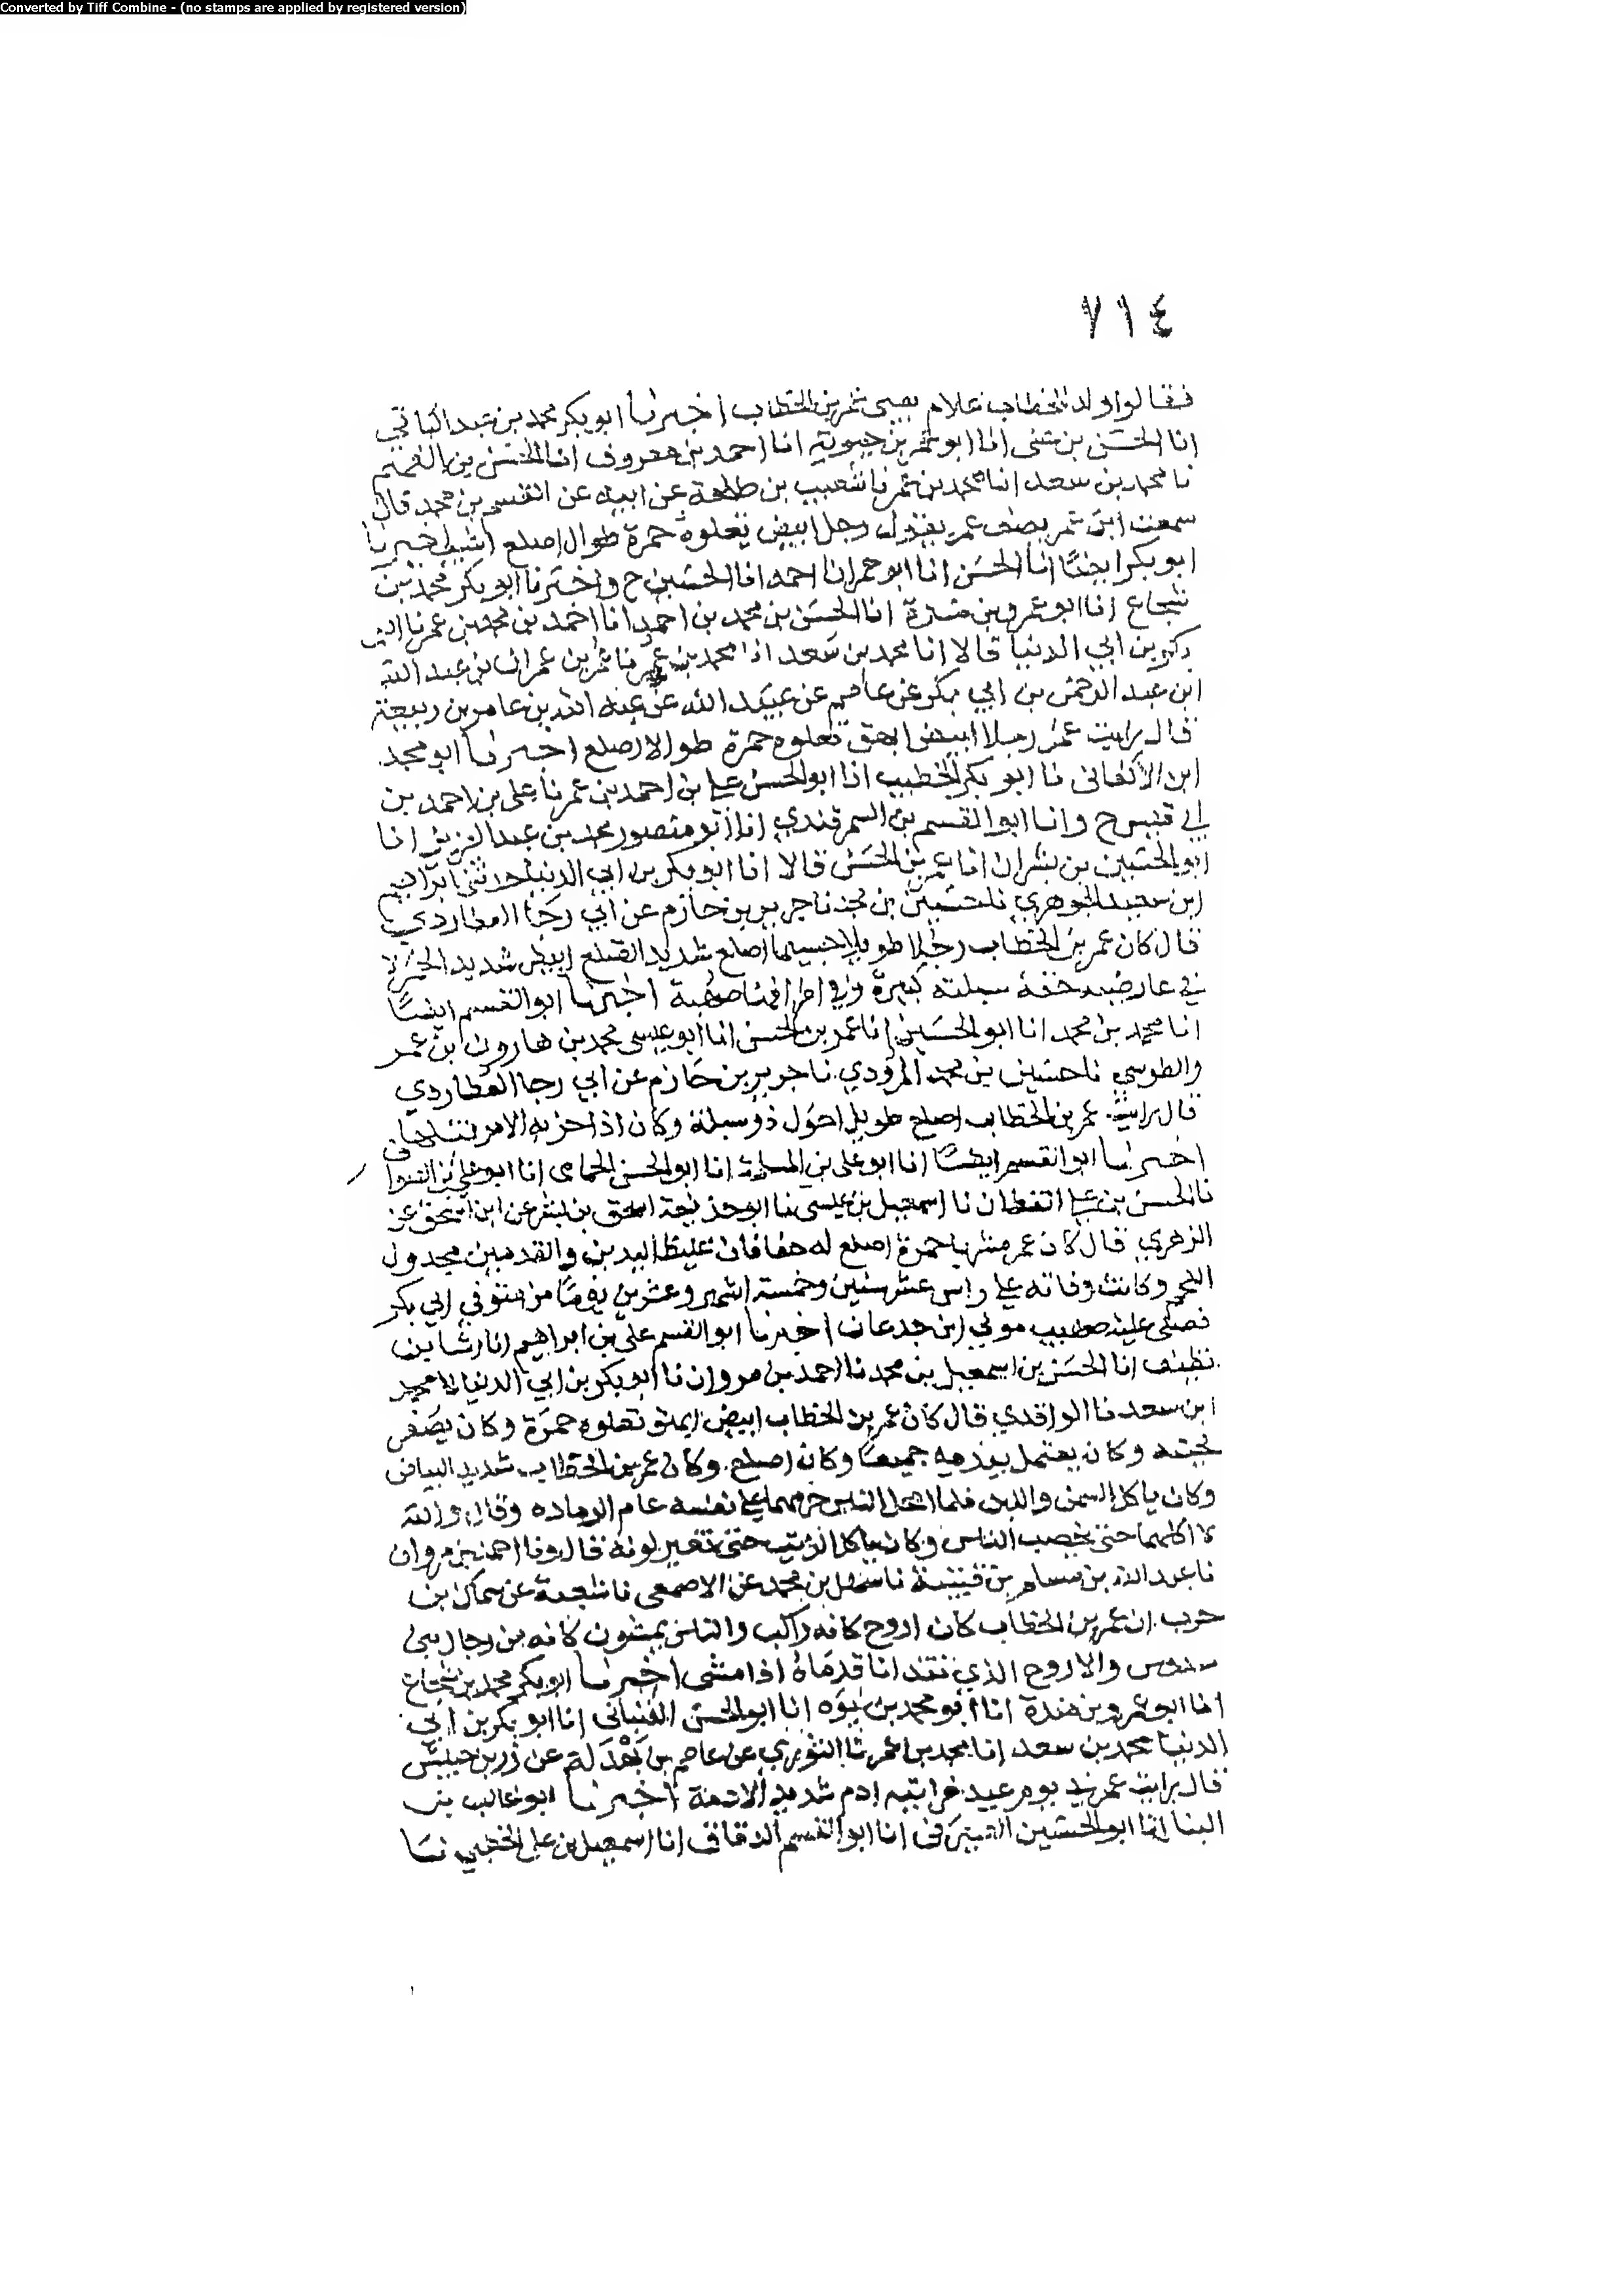 Converted by Tiff Combine - (no stamps are applied by registered version)
٧١٤
فقالوا ولد للخطاب غلام يعني عمر بن الخطاب اخبرنا ابو بكر محمد بن عبد الباقي
انا الحسن بن علي انا ابو عمر بن حيوية انا احمد بن معروف انا الحسن بن الفهم
نا محمد بن سعد انا محمد بن عمر نا شعيب بن طلحة عن ابيه عن القسم بن محمد قال
سمعت ابن عمر يصف عمر يقول رجل ابيض تعلوه حمرة طوال اصلع اشيب اخبرنا
ابو بكر ايضًا انا الحسن انا ابو عمر انا احمد انا الحسين ح واخبرنا ابو بكر محمد بن
شجاع انا ابو عمرو بن مندة انا الحسن بن محمد بن احمد انا احمد بن محمد بن عمر نا ابو
بكر بن ابي الدنيا قالا انا محمد بن سعد انا محمد بن عمر نا عمر بن عمران بن عبد الله
ابن عبد الرحمن بن ابي بكر عن عاصم عن عبيد الله عن عبد الله بن عامر بن ربيعة
قال رايت عمر رجلا ابيض امهق تعلوه حمرة طوالا اصلع اخبرنا ابو محمد
ابن الاكفاني نا ابو بكر الخطيب انا ابو الحسن علي بن احمد بن عمر نا علي بن احمد بن
ابي قيس ح وانا ابو القسم بن السمرقندي انا ابو منصور محمد بن عبد العزيز انا
ابو الحسين بن بشران انا عمر بن الحسن قالا انا ابو بكر بن ابي الدنيا حدثني ابراهيم
ابن سعيد الجوهري نا حسين بن محمد نا جرير بن حازم عن ابي رجا العطاردي
قال كان عمر بن الخطاب رجلا طويلا جسيما اصلع شديد الصلع ابيض شديد الحمرة
في عارضيه خفة سبلته كثيرة وفي اطرافها صهبة اخبرنا ابو القسم ايضًا
انا محمد بن محمد انا ابو الحسين انا عمر بن الحسن انا ابو عيسى محمد بن هارون ابن عمر
والطوسي نا حسين بن محمد المروذي نا جرير بن حازم عن ابي رجا العطاردي
قال رايت عمر بن الخطاب اصلع طويل احول ذو سبلة وكان اذا حزبه الامر
اخبرنا ابو القسم ايضًا انا ابو علي بن المسلمة انا ابو الحسن الحمامي انا ابو علي بن الصواف
نا الحسن بن علي القطان نا اسمعيل بن عيسى نا ابو حذيفة اسحق بن بشر عن ابن اسحق عن
الزهري قال كان عمر مشربا حمرة اصلع له حفافان غليظ اليدين والقدمين مجدول
اللحم وكانت وفاته على راس عشر سنين وخمسة اشهر وعشرين يومًا من متوفى ابي بكر
فصلى عليه صهيب مولى ابن جدعان اخبرنا ابو القسم علي بن ابراهيم انا رشا بن
نظيف انا الحسن بن اسمعيل بن محمد نا احمد بن مروان نا ابو بكر بن ابي الدنيا نا محمد
ابن سعد نا الواقدي قال كان عمر بن الخطاب ابيض امهق تعلوه حمرة وكان يصفر
لحيته وكان يعتمل بيديه جميعًا وكان اصلع وكان عمر بن الخطاب شديد البياض
وكان ياكل السمن واللبن فلما امحل الناس حرمهما على نفسه عام الرماده وقال والله
لا اكلهما حتى يخصب الناس وكان ياكل الزيت حتى تغير لونه قال ونا احمد بن مروان
نا عبد الله بن مسلم بن قتيبة نا سهل بن محمد عن الاصمعي نا شعبة عن سماك بن
حرب ان عمر بن الخطاب كان اروح كانه راكب والناس يمشون كانه من رجال بني
سدوس والاروح الذي تتدانا قدماه اذا مشى اخبرنا ابو بكر محمد بن شجاع
انا ابو عمرو بن مندة انا ابو محمد بن يوه انا ابو الحسن اللنباني انا ابو بكر بن ابي
الدنيا محمد بن سعد انا محمد بن عمر نا الثوري عن عاصم بن بهدلة عن زر بن حبيش
قال رايت عمر في يوم عيد فرايته ادم شديد الادمة اخبرنا ابو غالب بن
البنا انا ابو الحسين انا ابو القسم الدقاق انا اسمعيل بن علي الخطبي نا